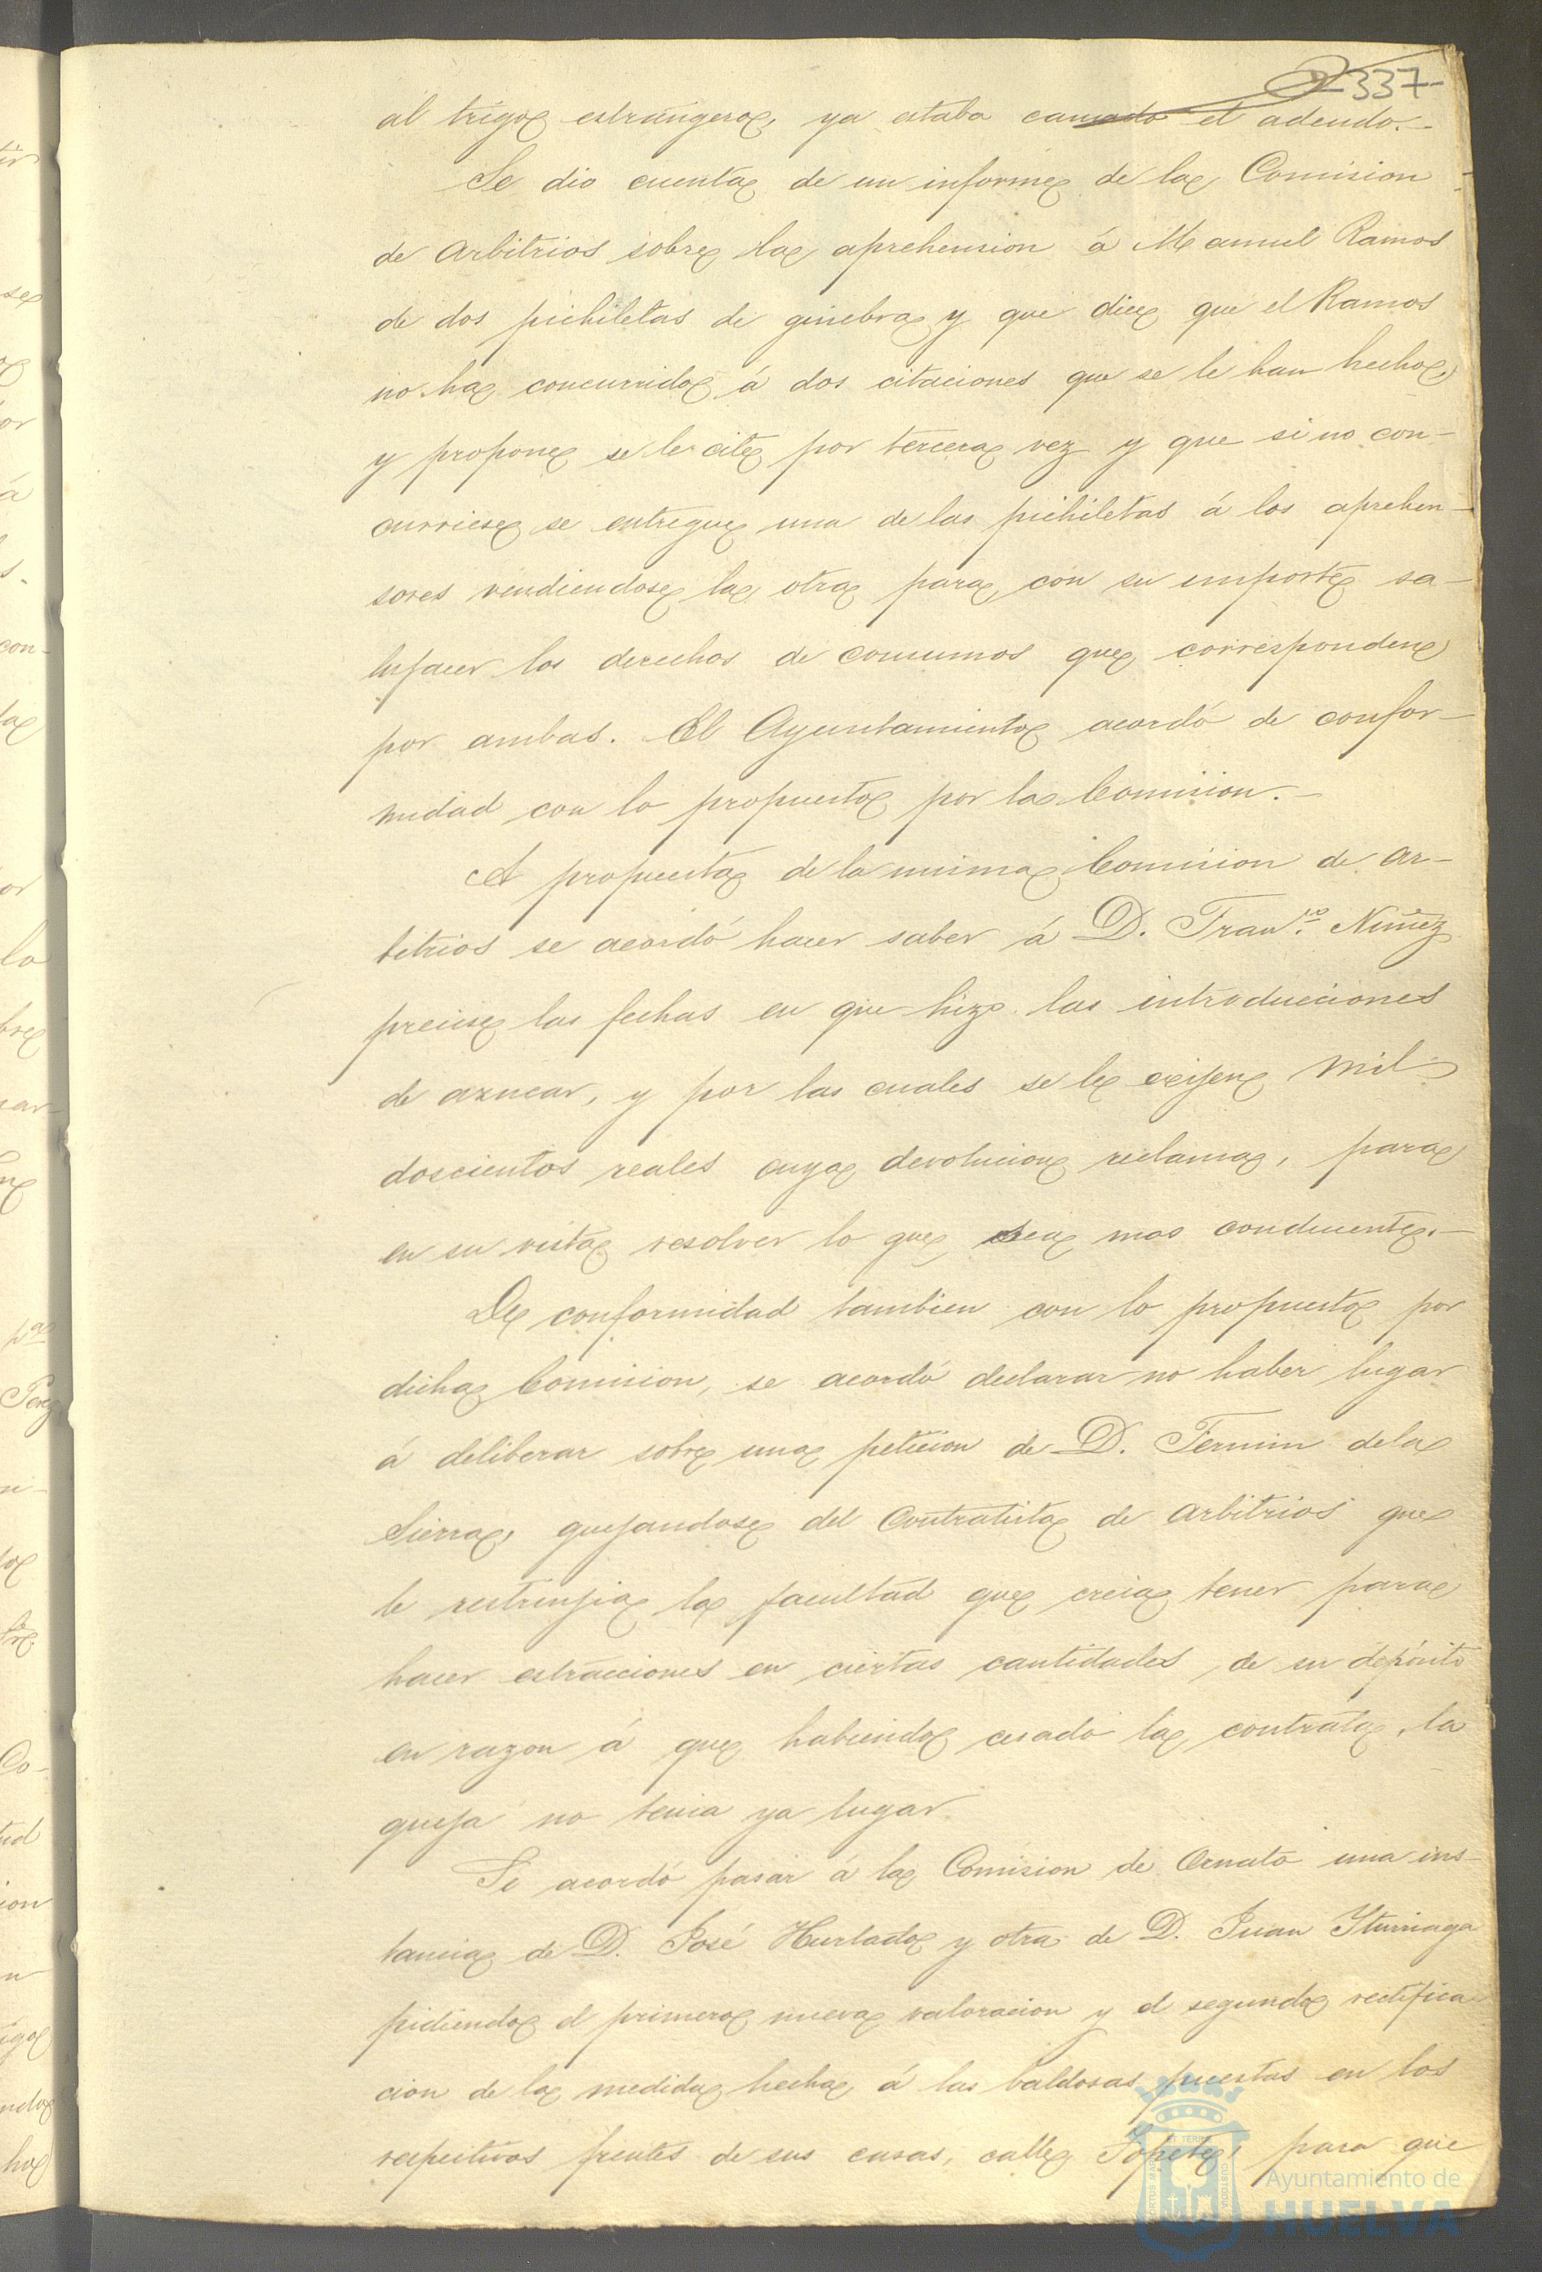 337
al trigo estrangero, ya estaba causado el adeudo.-
Se dio cuenta de un informe de la Comision
de Arbitrios sobre la aprehension á Manuel Ramos
de dos pichiletas de ginebra y que dice que el Ramos
no ha concurrido á dos citaciones que se le han hecho,
y propone se le cite por tercera vez y que si no con-
curriese se entregue una de las pichiletas á los aprehen-
sores vendiendose la otra para con su importe sa-
tisfacer los derechos de consumos que corresponden
por ambas. El Ayuntamiento acordó de confor-
midad con lo propuesto por la Comision.-
A propuesta de la misma Comision de Ar-
bitrios se acordó hacer saber á D. Fran.co Nuñez
precise las fechas en que hizo las introducciones
de azucar, y por las cuales se le exijen mil
doscientos reales cuya devolucion reclama, para
en su vista resolver lo que sea mas conducente.-
De conformidad tambien con lo propuesto por
dicha Comision, se acordó declarar no haber lugar
á deliberar sobre una peticion de D. Fermin de la
Sierra, quejandose del Contratista de arbitrios que
le restrinjia la facultad que creia tener para
hacer estracciones en ciertas cantidades de su depósito
en razon á que habiendo cesado la contrata, la
queja no tenia ya lugar
Se acordó pasar á la Comision de Ornato una ins-
tancia de D. José Hurtado y otra de D. Juan Yturriaga
pidiendo el primero nueva valoracion y el segundo rectifica-
cion de la medida hecha á las baldosas puestas en los
respectivos frentes de sus casas, calle Topete, para que
Ayuntamiento de
HUELVA